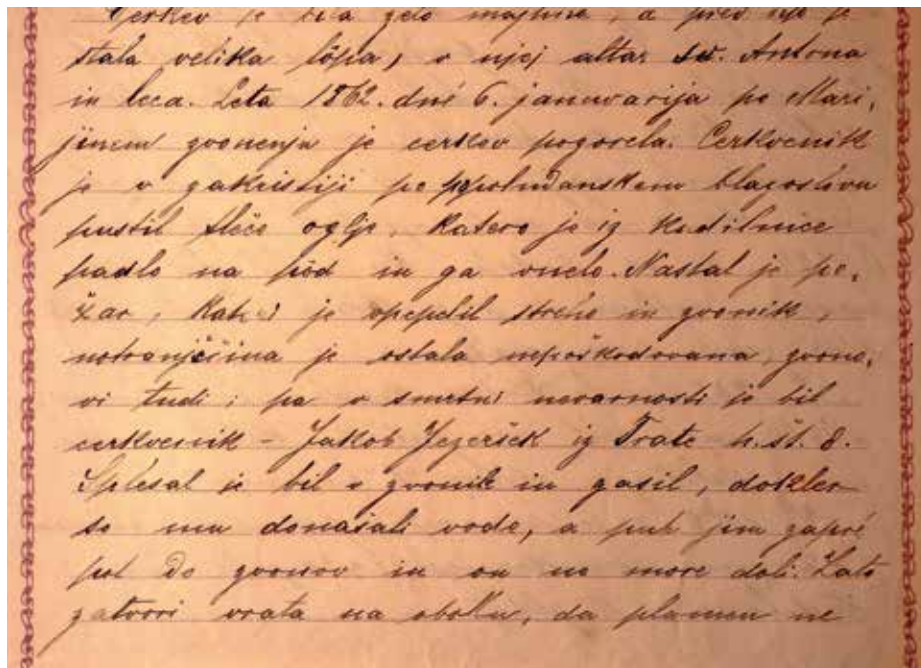 Cerkev je bila zelo majhna, a pred njo je
stala velika lópa, v njej altar sv. Antona
in leca. Leta 1862. dné 6. januvarija po Mari,
jinem zvonenju je cerkev pogorela. Cerkvenik
je v zakristiji po popoludanskem blagoslovu
pustil tleče oglje, katero je iz kadilnice
padlo na pòd in ga vnelo. Nastal je po,
žar, kateri je upepelil streho in zvonik,
notranjščina je ostala nepoškodovana, zvono,
vi tudi; pa v smrtni nevarnosti je bil
cerkvenik - Jakob Jezeršek iz Trate h. št. 8.
Splesal je bil v zvonik in gasil, dokler
so mu donašali vodo, a put jim zapre
put do zvonov in on ne more doli. Zato
zatvori vrata na oboku, da plamen ne